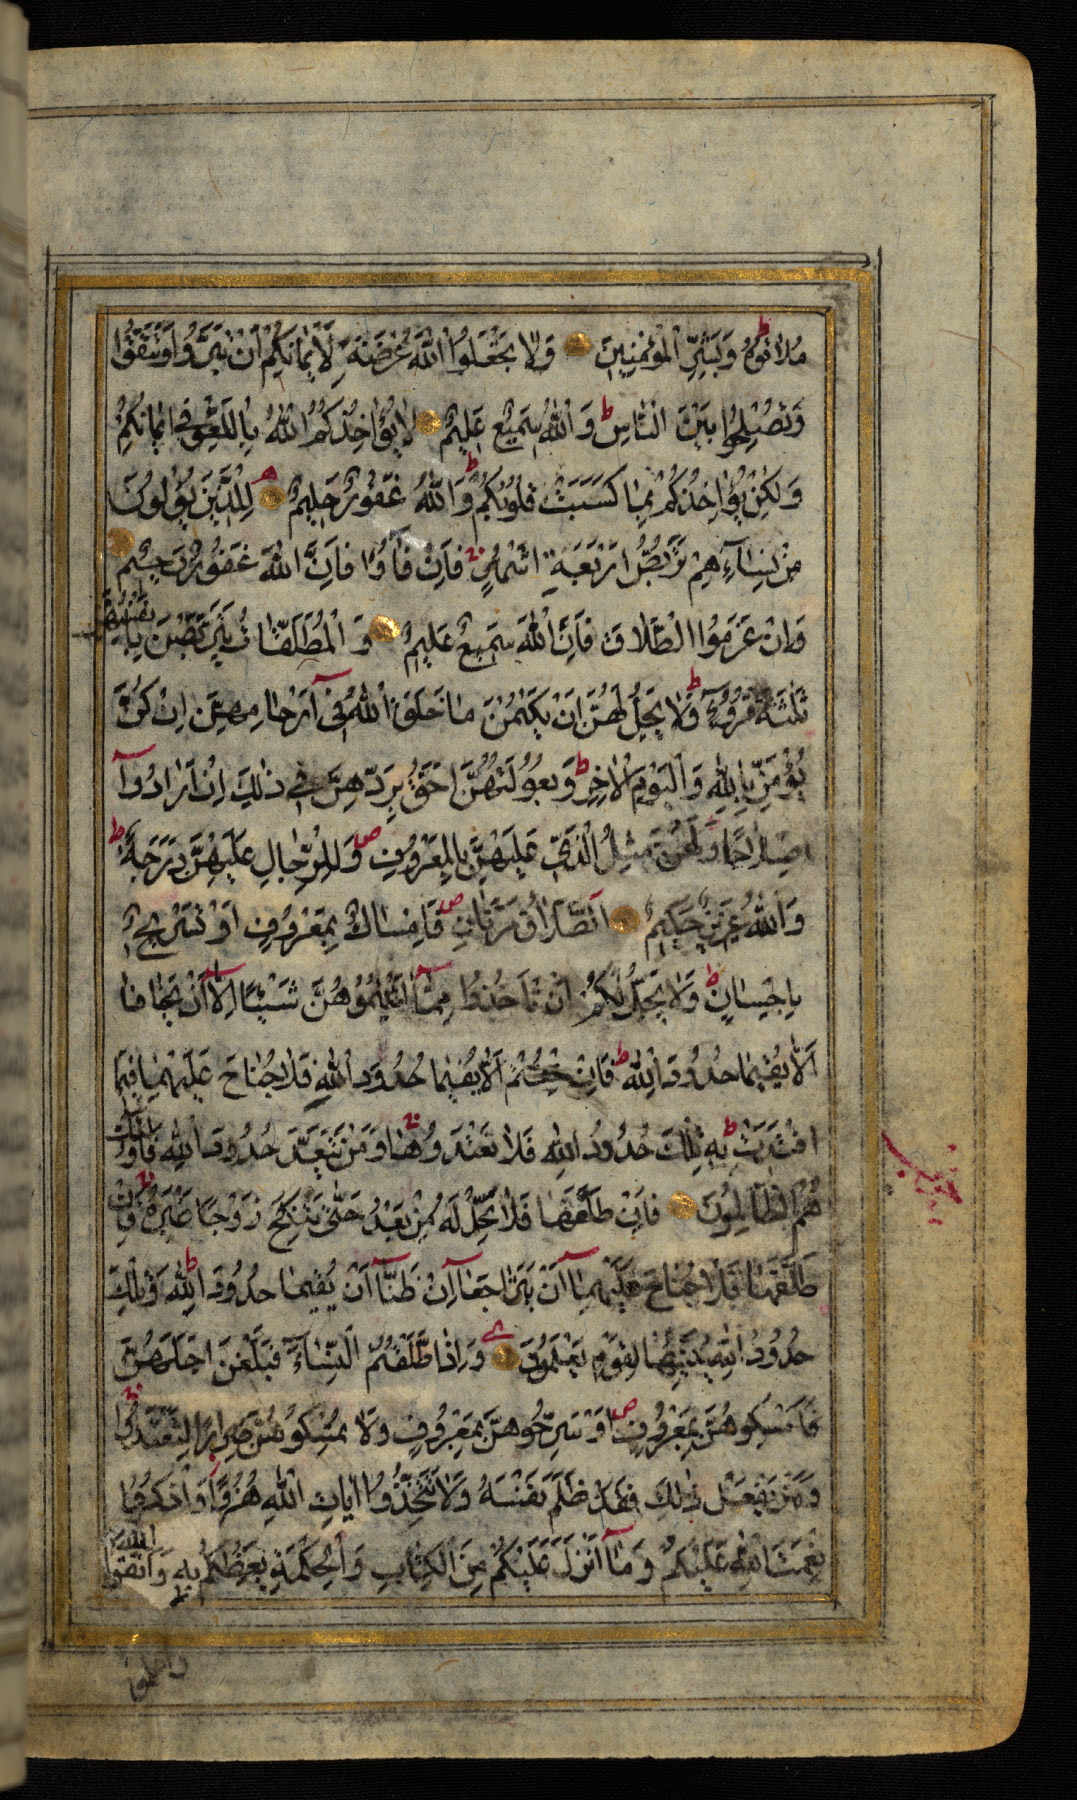 مُلَاقُوهُ وَبَشِّرِ الْمُؤْمِنِينَ وَلَا تَجْعَلُوا اللَّهَ عُرْضَةً لِأَيْمَانِكُمْ أَنْ تَبَرُّوا وَتَتَّقُوا
وَتُصْلِحُوا بَيْنَ النَّاسِ ط وَاللَّهُ سَمِيعٌ عَلِيمٌ لَا يُؤَاخِذُكُمُ اللَّهُ بِاللَّغْوِ فِي أَيْمَانِكُمْ
وَلَكِنْ يُؤَاخِذُكُمْ بِمَا كَسَبَتْ قُلُوبُكُمْ ط وَاللَّهُ غَفُورٌ حَلِيمٌ لِلَّذِينَ يُؤْلُونَ
مِنْ نِسَآئِهِمْ تَرَبُّصُ أَرْبَعَةِ أَشْهُرٍ فَإِنْ فَآؤُا فَإِنَّ اللَّهَ غَفُورٌ رَحِيمٌ
وَإِنْ عَزَمُوا الطَّلَاقَ فَإِنَّ اللَّهَ سَمِيعٌ عَلِيمٌ وَالْمُطَلَّقَاتُ يَتَرَبَّصْنَ بِأَنْفُسِهِنَّ
ثَلٰثَةَ قُرُوءٍ ط وَلَا يَحِلُّ لَهُنَّ أَنْ يَكْتُمْنَ مَا خَلَقَ اللَّهُ فِي أَرْحَامِهِنَّ إِنْ كُنَّ
يُؤْمِنَّ بِاللَّهِ وَالْيَوْمِ الْآخِرِ ط وَبُعُولَتُهُنَّ أَحَقُّ بِرَدِّهِنَّ فِي ذٰلِكَ إِنْ أَرَادُوا
إِصْلَاحًا وَلَهُنَّ مِثْلُ الَّذِي عَلَيْهِنَّ بِالْمَعْرُوفِ ص وَلِلرِّجَالِ عَلَيْهِنَّ دَرَجَةٌ ط
وَاللَّهُ عَزِيزٌ حَكِيمٌ الطَّلَاقُ مَرَّتَانِ ص فَإِمْسَاكٌ بِمَعْرُوفٍ أَوْ تَسْرِيحٌ
بِإِحْسَانٍ ط وَلَا يَحِلُّ لَكُمْ أَنْ تَأْخُذُوا مِمَّآ آتَيْتُمُوهُنَّ شَيْئًا إِلَّآ أَنْ يَخَافَا
أَلَّا يُقِيمَا حُدُودَ اللَّهِ ط فَإِنْ خِفْتُمْ أَلَّا يُقِيمَا حُدُودَ اللَّهِ فَلَا جُنَاحَ عَلَيْهِمَا فِيمَا
افْتَدَتْ بِهِ ط تِلْكَ حُدُودُ اللَّهِ فَلَا تَعْتَدُوهَا وَمَنْ يَتَعَدَّ حُدُودَ اللَّهِ فَأُولٰئِكَ
هُمُ الظَّالِمُونَ فَإِنْ طَلَّقَهَا فَلَا تَحِلُّ لَهُ مِنْ بَعْدُ حَتَّى تَنْكِحَ زَوْجًا غَيْرَهُ ط فَإِنْ
طَلَّقَهَا فَلَا جُنَاحَ عَلَيْهِمَآ أَنْ يَتَرَاجَعَآ إِنْ ظَنَّآ أَنْ يُقِيمَا حُدُودَ اللَّهِ ط وَتِلْكَ
حُدُودُ اللَّهِ يُبَيِّنُهَا لِقَوْمٍ يَعْلَمُونَ وَإِذَا طَلَّقْتُمُ النِّسَاءَ فَبَلَغْنَ أَجَلَهُنَّ
فَأَمْسِكُوهُنَّ بِمَعْرُوفٍ ص أَوْ سَرِّحُوهُنَّ بِمَعْرُوفٍ وَلَا تُمْسِكُوهُنَّ ضِرَارًا لِتَعْتَدُوا
وَمَنْ يَفْعَلْ ذٰلِكَ فَقَدْ ظَلَمَ نَفْسَهُ وَلَا تَتَّخِذُوا آيَاتِ اللَّهِ هُزُوًا وَاذْكُرُوا
نِعْمَتَ اللَّهِ عَلَيْكُمْ وَمَآ أَنْزَلَ عَلَيْكُمْ مِنَ الْكِتَابِ وَالْحِكْمَةِ يَعِظُكُمْ بِهِ وَاتَّقُوا اللَّهَ
واعلموا